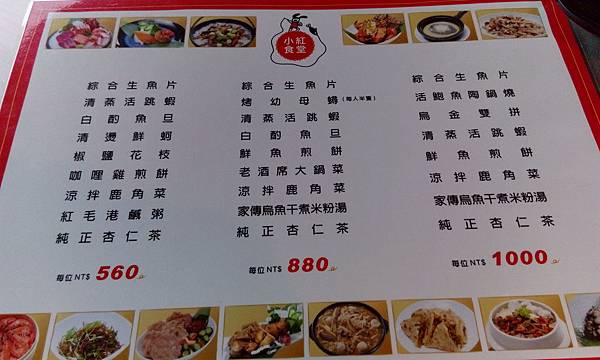 小紅
食堂
綜合生魚片
清蒸活跳蝦
白酌魚旦
清燙鮮蚵
椒鹽花枝
咖哩雞煎餅
涼拌鹿角菜
紅毛港鹹粥
純正杏仁茶
每位NT$ 560
綜合生魚片
烤幼母蟳(每人半隻)
清蒸活跳蝦
白酌魚旦
鮮魚煎餅
老酒席大鍋菜
涼拌鹿角菜
家傳烏魚干煮米粉湯
純正杏仁茶
每位NT$ 880
綜合生魚片
活鮑魚陶鍋燒
烏金雙拼
清蒸活跳蝦
鮮魚煎餅
涼拌鹿角菜
家傳烏魚干煮米粉湯
純正杏仁茶
每位NT$ 1000